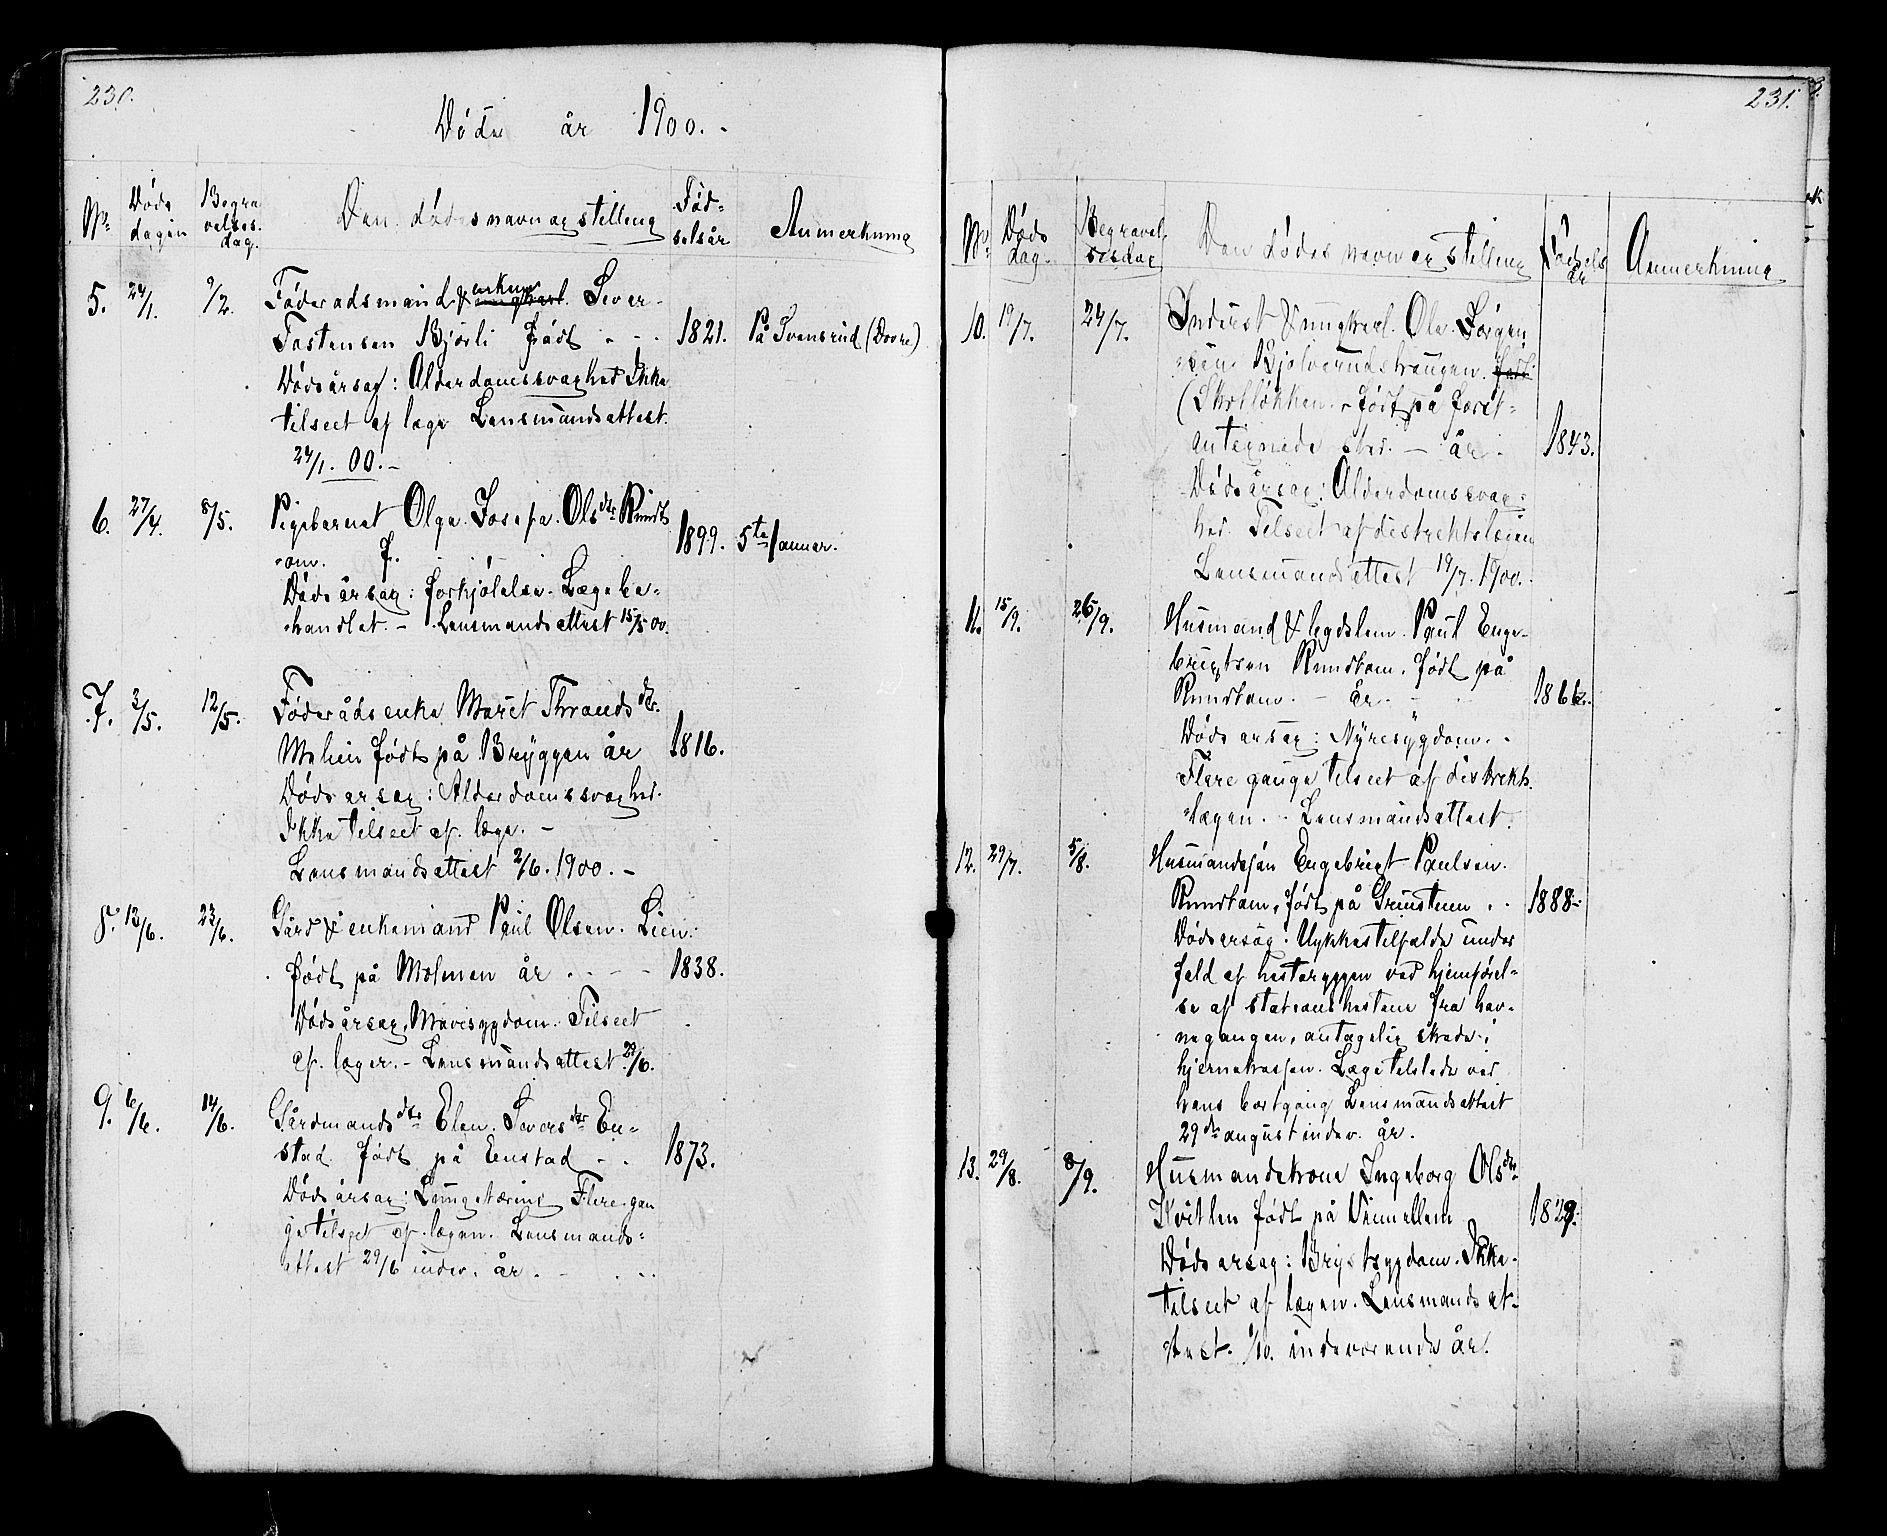 230.
Døde år 1900.
No. Døds dagen Begravelses. dag. Den dødes navn og stilling Fødselsår Anmerkning
5. 24/1. 9/2. Føderadsmand & enkem ungkarl. Siver
Tostensen Bjørli født 1821. På Tvensrud (Dovre)
Dødsårsag: Alderdomssvaghed Ikke
tilseet af læge Lensmandsattest.
24/1. 00. –
6. 27/4. 8/5. Pigebarnet Olga Josefa Olsdtr Rundt
om. f. 1899. 5te Januar.
Dødsårsag: forkjølelse. Lægebe-
handlet. – Lensmandsattest 15/5 00.
7. 3/5. 12/5. Føderådsenke Marit Throndsdtr.
Molien født på Bryggen år 1816.
Dødsarsag: Alderdomssvaghed.
Ikke tilseet af læge. –
Lensmandsattest 2/6. 1900. –
8. 13/6. 23/6. Gård & enkemand Paul Olsen. Lien.
født på Molmen år 1838.
Dødsårsag, Mavesygdom. Tilseet
af læger. – Lensmandsattest 29/6.
9. 6/6. 14/6. Gårdmandsdtr Elen. Siversdtr En-
stad født på Enstad 1873.
Dødsårsag: Lungetæring Flere gan
ge tilseet af lægen. Lensmands-
attest 29/6 indev. år.
231.
No. Døds dag. Begravelsesdag Den dødes navn og stilling Fødsels år Anmerkning
10. 19/7. 24/7. Inderst & ungkarl. Ole Jørgen
sen Bjølverudshaugen. født
(Skotløkken. – født på først-
antegnede sted. – år. 1843.
Dødsårsag: Alderdomssvag-
hed. Tilseet af distriktslægen
Lensmandsattest 19/7. 1900.
11. 15/9. 26/9. Husmand & legdslem. Paul Enge-
brigtsen Rundtom. født på
Rundtom. – år. 1862.
Dødsarsag: Nyresygdom.
Flere gange tilseet af distrikts.
lægen. – Lensmandsattest.
12. 29/7. 5/8. Husmandssøn Engebrigt Paulsen.
Rundtom, født på 1888.
Dødsarsag. Ulykkestilfælde under
fald af hesteryggen ved hjemførel-
se af stationshestene fra hav-
negangen, antagelig skade i
hjernekassen. Læge tilstede ved
hans bortgang Lensmandsattest
29de august indev. år.
13. 29/8. 8/9. Husmandskone Ingeborg Olsdtr.
Kvitlen født på 1829.
Dødsarsag: Brystsygdom. Ikke
tilseet af lægen. Lensmandsat-
test. 1/10. indeværende år.